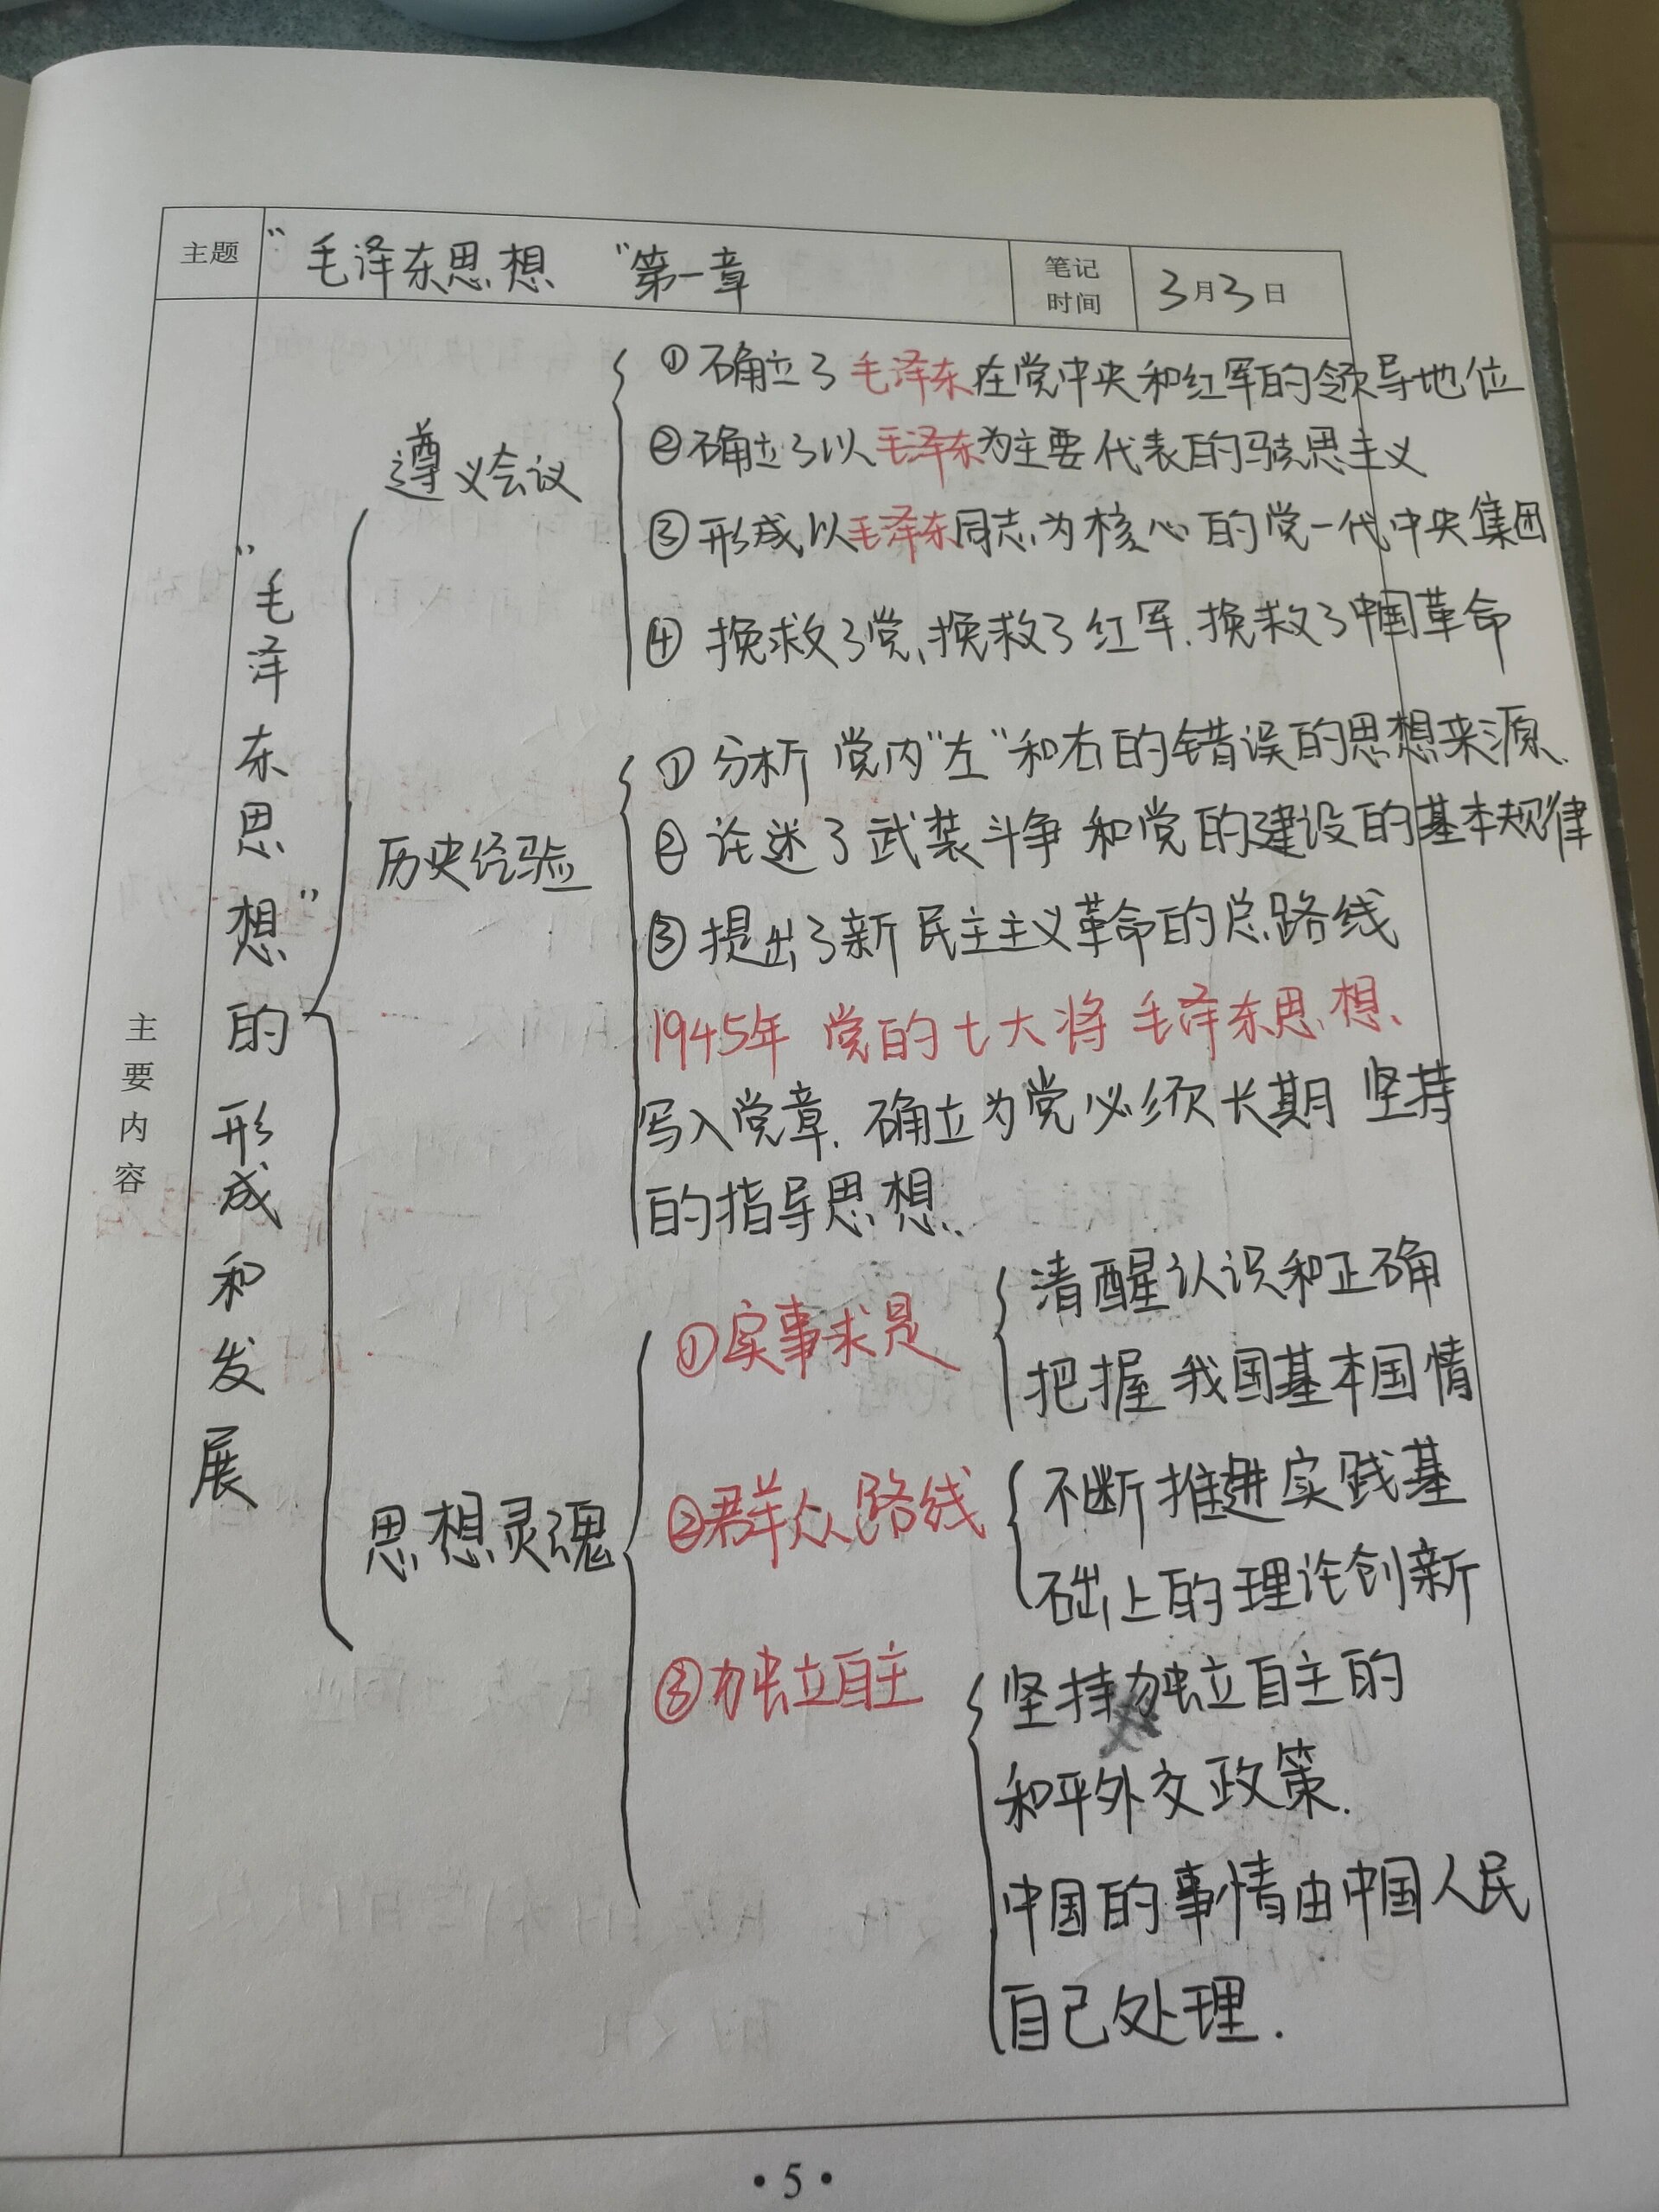 主题
“毛泽东思想 “第一章
笔记
时间
3月3日
主要内容
“毛泽东思想”的形成和发展
遵义会议
①确立了毛泽东在党中央和红军的领导地位
②确立了以毛泽东为主要代表的马克思主义
③形成以毛泽东同志为核心的党一代中央集团
④挽救了党、挽救了红军.挽救了中国革命
历史经验
①分析党内“左“和右的错误的思想来源、
②论述了武装斗争和党的建设的基本规律
③提出了新民主主义革命的总路线
1945年 党的七大将毛泽东思想、
写入党章.确立为党必须长期坚持
的指导思想、
思想灵魂
①实事求是
清醒认识和正确
把握我国基本国情
②群众路线
不断推进实践基
础上的理论创新
③独立自主
坚持独立自主的
和平外交政策.
中国的事情由中国人民
自己处理.
·5·